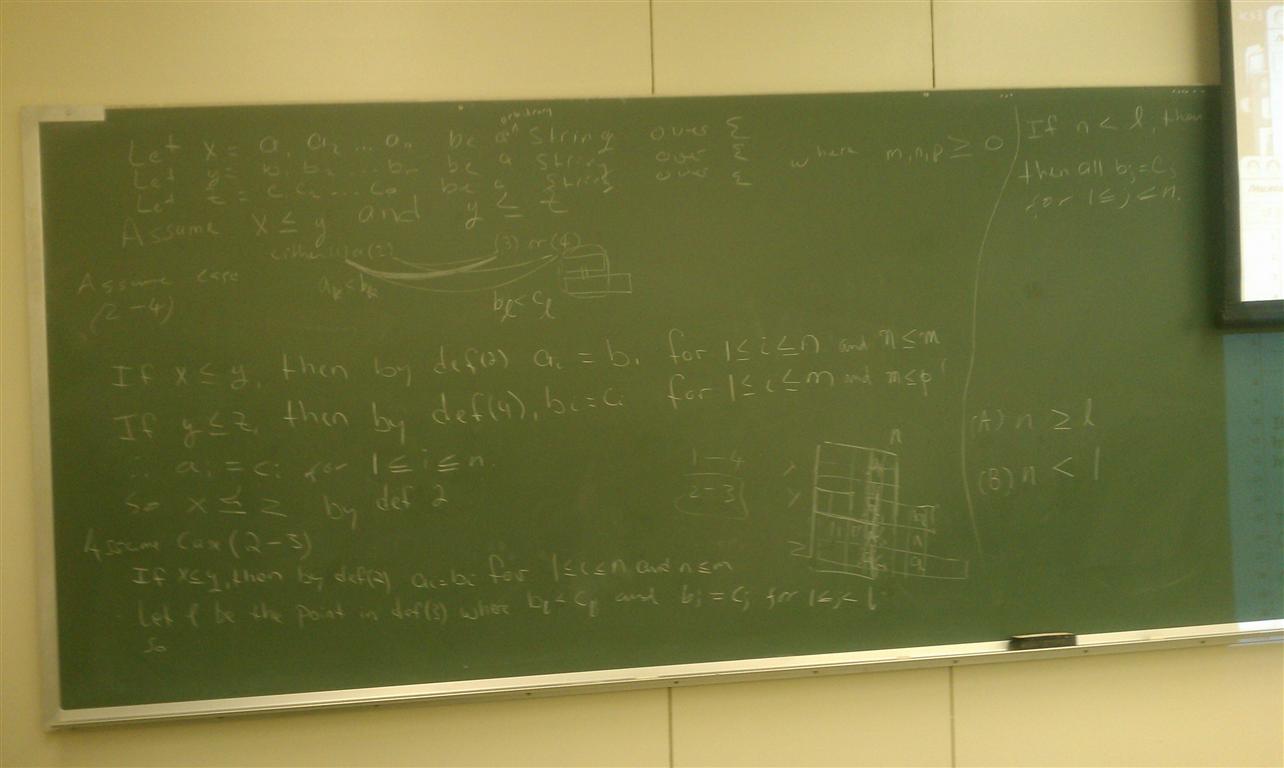 Let x = a₁ a₂ ... aₙ be a ^arbitrary String over Σ
Let y = b₁ b₂ ... be a String over Σ where m,n,p ≥ 0
Let z = c₁ c₂ ... be a String over Σ
Assume x ≤ y and y ≤ z
either (1) or (2) (3) or (4)
Assume case
(2-4)
aₖ < bₖ
bₗ < cₗ
If x ≤ y, then by def(2) aᵢ = bᵢ for 1 ≤ i ≤ n and n ≤ m
If y ≤ z, then by def(4), bᵢ = cᵢ for 1 ≤ i ≤ m and m ≤ p
∴ aᵢ = cᵢ for 1 ≤ i ≤ n.
So x ≤ z by def 2
Assume Case (2-3)
If x ≤ y, then by def(2) aᵢ = bᵢ for 1 ≤ i ≤ n and n ≤ m
Let l be the point in def(3) where bₗ < cₗ and bⱼ = cⱼ for 1 ≤ j < l
So
1-4
2-3
n
If n < l, then
then all bⱼ = cⱼ
for 1 ≤ j ≤ n.
(A) n ≥ l
(B) n < l